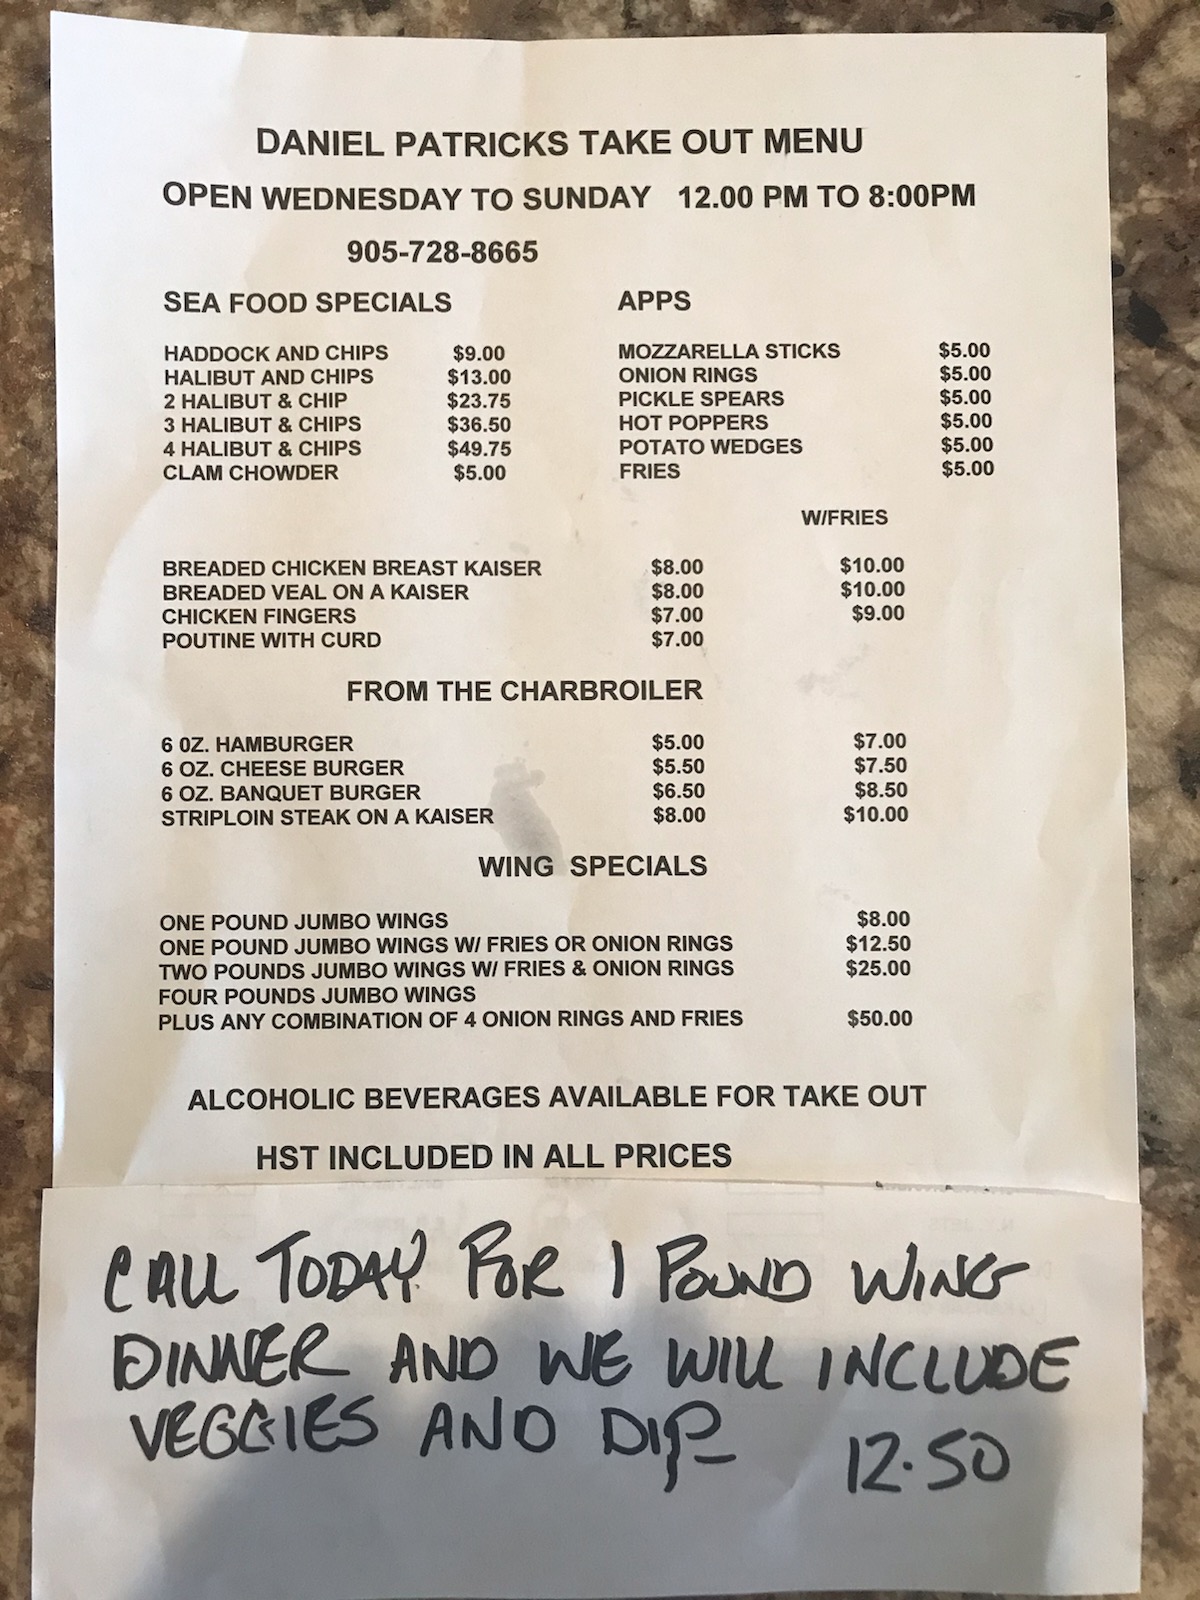 DANIEL PATRICKS TAKE OUT MENU
OPEN WEDNESDAY TO SUNDAY 12.00 PM TO 8:00PM
905-728-8665
SEA FOOD SPECIALS
HADDOCK AND CHIPS $9.00
HALIBUT AND CHIPS $13.00
2 HALIBUT & CHIP $23.75
3 HALIBUT & CHIPS $36.50
4 HALIBUT & CHIPS $49.75
CLAM CHOWDER $5.00
APPS
MOZZARELLA STICKS $5.00
ONION RINGS $5.00
PICKLE SPEARS $5.00
HOT POPPERS $5.00
POTATO WEDGES $5.00
FRIES $5.00
W/FRIES
BREADED CHICKEN BREAST KAISER $8.00 $10.00
BREADED VEAL ON A KAISER $8.00 $10.00
CHICKEN FINGERS $7.00 $9.00
POUTINE WITH CURD $7.00
FROM THE CHARBROILER
6 0Z. HAMBURGER $5.00 $7.00
6 OZ. CHEESE BURGER $5.50 $7.50
6 OZ. BANQUET BURGER $6.50 $8.50
STRIPLOIN STEAK ON A KAISER $8.00 $10.00
WING SPECIALS
ONE POUND JUMBO WINGS $8.00
ONE POUND JUMBO WINGS W/ FRIES OR ONION RINGS $12.50
TWO POUNDS JUMBO WINGS W/ FRIES & ONION RINGS $25.00
FOUR POUNDS JUMBO WINGS
PLUS ANY COMBINATION OF 4 ONION RINGS AND FRIES $50.00
ALCOHOLIC BEVERAGES AVAILABLE FOR TAKE OUT
HST INCLUDED IN ALL PRICES
CALL TODAY FOR 1 POUND WING
DINNER AND WE WILL INCLUDE
VEGGIES AND DIP 12.50